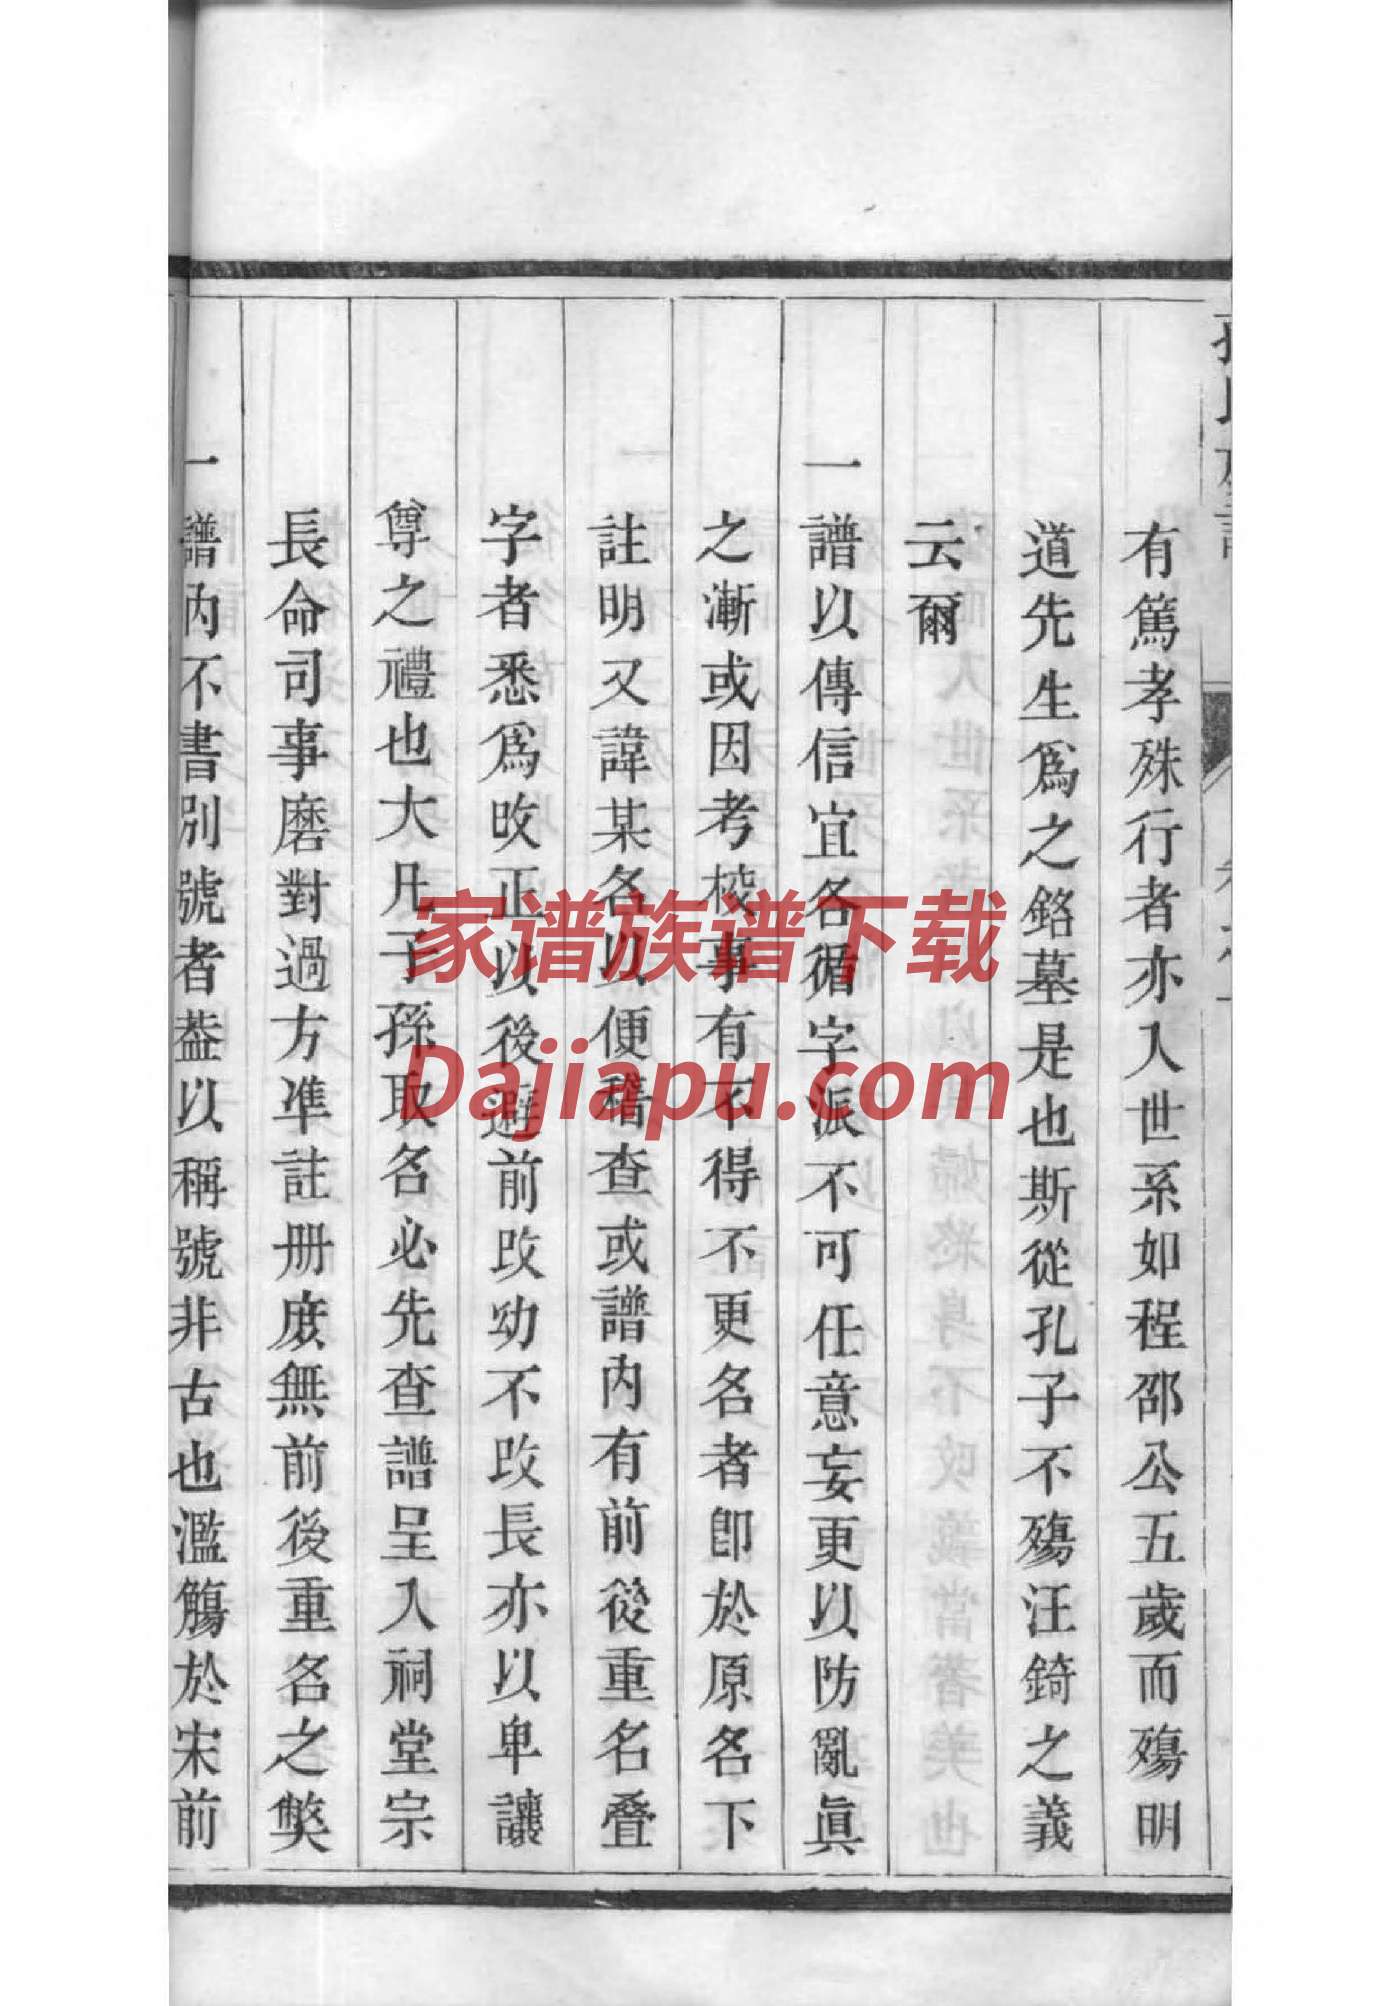 有篤孝殊行者亦入世系如程邵公五歲而殤明
道先生爲之銘墓是也斯從孔子不殤汪錡之義
云爾
一譜以傳信宜各循字派不可任意妄更以防亂眞
之漸或因考校事有不得不更名者卽於原名下
註明又諱某名以便稽查或譜內有前後重名叠
字者悉爲改正以後避前改幼不改長亦以卑讓
尊之禮也大凡子孫取名必先查譜呈入祠堂宗
長命司事磨對過方准註册庶無前後重名之獘
一譜內不書別號者葢以稱號非古也濫觴於宋前
家谱族谱下载
Dajiapu.com